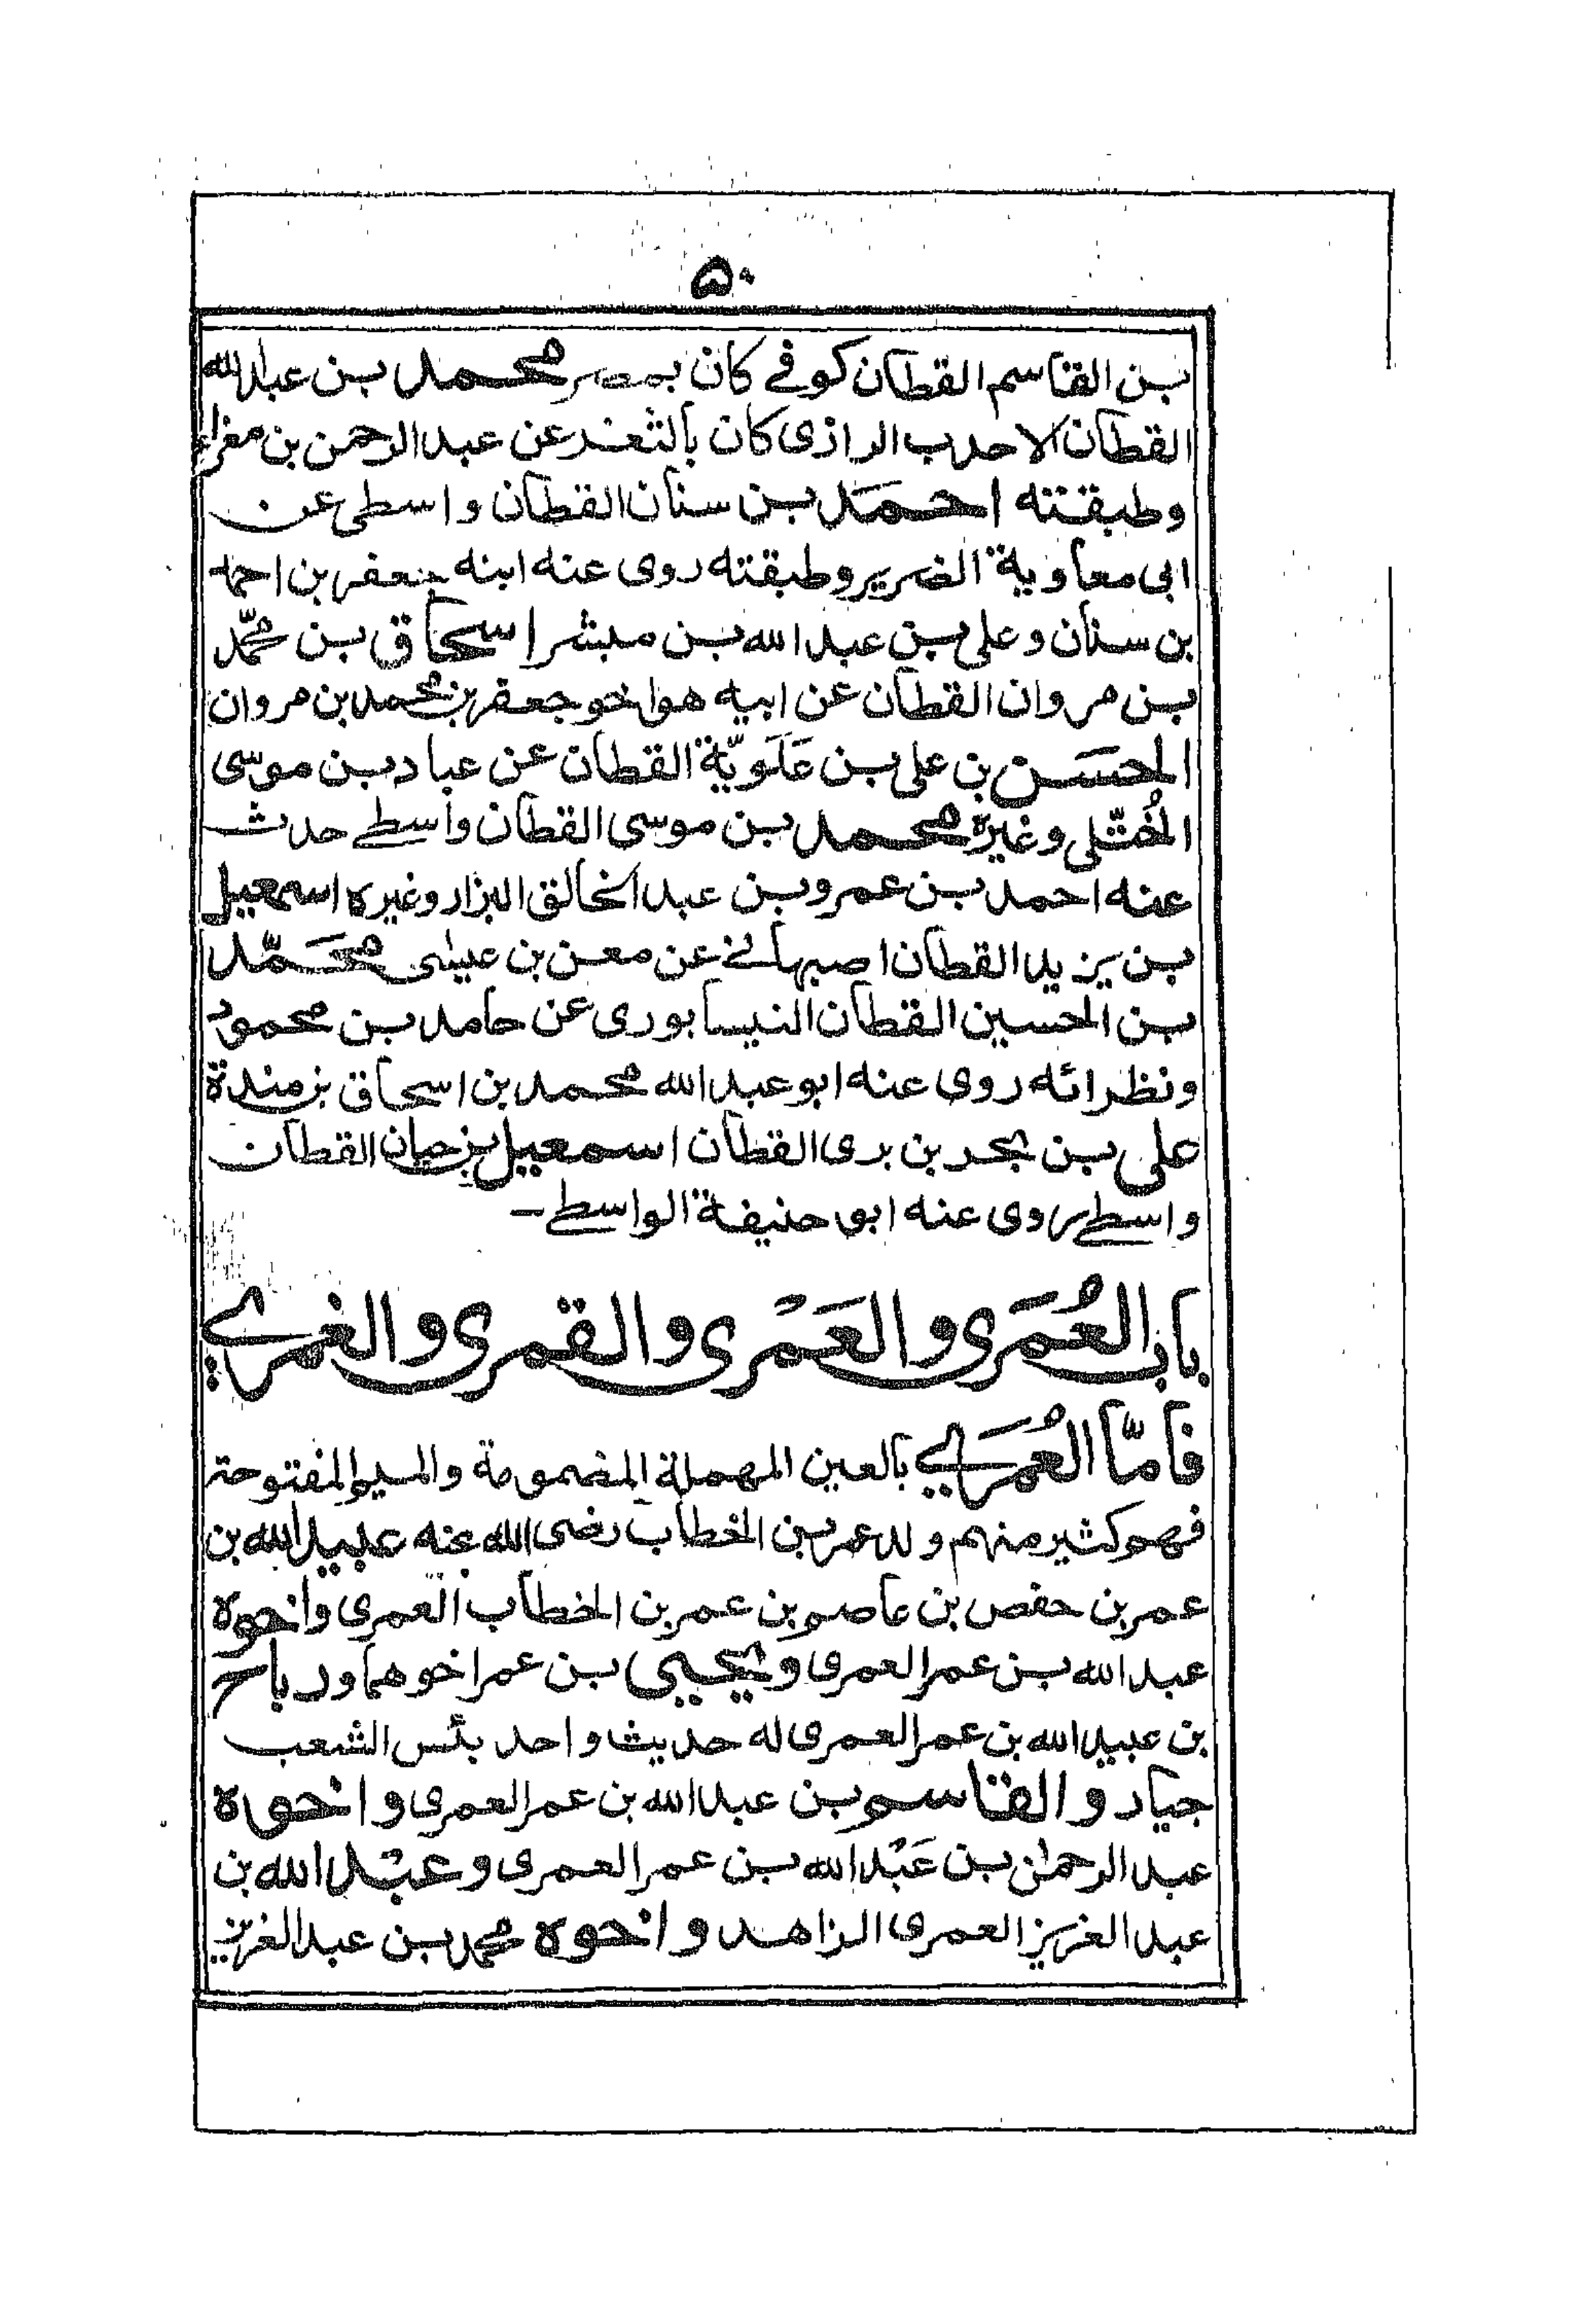 ۵۰
بن القاسم القطان كوفے كان بمصر محمد بن عبدالله
القطان الاحدب الرازى كان بالثغر عن عبدالرحمن بن مغراء
وطبقته احمَد بن سنان القطان واسطى عن
ابى معاوية الضرير وطبقته روى عنه ابنه جعفر بن احمد
بن سنان وعلى بن عبدالله بن مبشر اسحاق بن محمّد
بن مروان القطان عن ابيه هو اخو جعفر بن محمد بن مروان
الحسَن بن على بن عَلَويّة القطان عن عباد بن موسى
الخُتّلى وغيرة محمد بن موسى القطان واسطے حدث
عنه احمد بن عمرو بن عبدالخالق البزار وغيره اسمعيل
بن يزيد القطان اصبهانے عن معن بن عيسٰى محَمّد
بن الحسين القطان النيسابورى عن حامد بن محمود
ونظرائه روى عنه ابو عبدالله محمد بن اسحاق بن مندة
على بن بحر بن برى القطان اسمعيل بن حيان القطان
واسطے روى عنه ابو حنيفة الواسطے ـ
باب العُمَرى والعَمْرى والقمرى والغمرے
فامّا العُمَرے بالعين المهملة المضمومة والميم المفتوحة
فهو كثير منهم ولد عمر بن الخطاب رضى الله عنه عبيدالله بن
عمر بن حفص بن عاصم بن عمر بن الخطاب العمرى واخوه
عبدالله بن عمر العمرى ويحيى بن عمر اخوهما ورباح
بن عبيدالله بن عمر العمرى له حديث واحد بئس الشعب
جياد والقاسم بن عبدالله بن عمر العمرى واخوه
عبدالرحمٰن بن عَبْدالله بن عمر العمرى وعبْدالله بن
عبدالعزيز العمرى الزاهد واخوه محمد بن عبدالعزيز